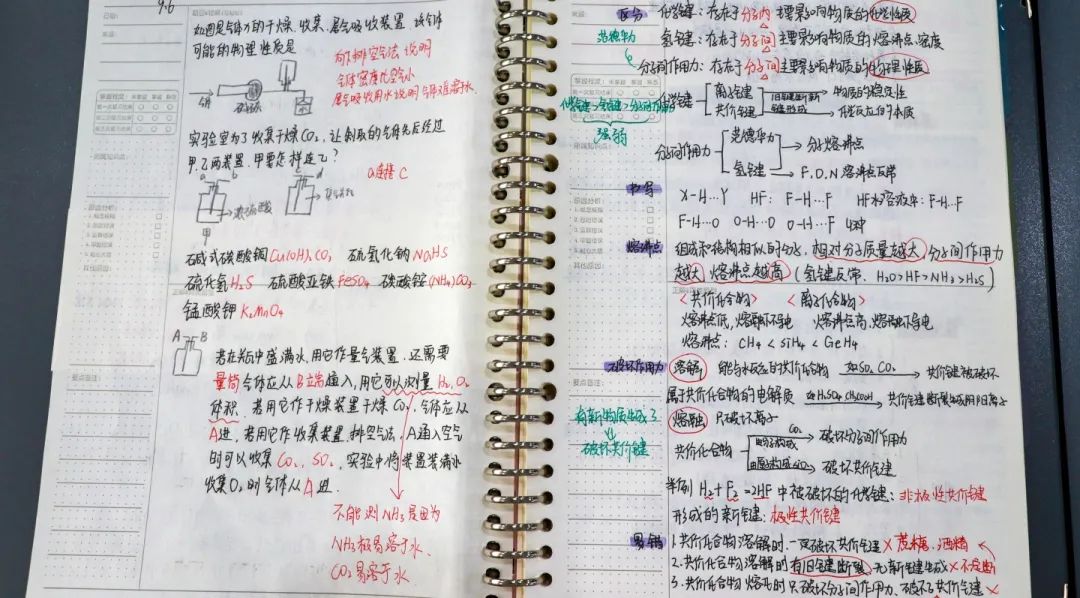 9.6
如图是气体X的干燥、收集、尾气吸收装置,该气体
可能的物理性质是
向下排空气法,说明
气体密度比空气小
尾气吸收用水说明气体难溶于水.
实验室为了收集干燥CO₂,让制取的气体先后经过
甲乙两装置.甲要怎样连乙?
a连接C
a b c d
浓硫酸
甲
碱式碳酸铜Cu₂(OH)₂CO₃ 硫氢化钠NaHS
硫化氢H₂S 硫酸亚铁FeSO₄ 碳酸铵(NH₄)₂CO₃
锰酸钾K₂MnO₄
A B
若在其中盛满水,用它作量气装置.还需要
量筒气体应从B端通入,用它可以测量H₂、O₂
体积.若用它作干燥装置干燥CO₂,气体应从
A进.若用它作收集装置.排空气法,A通入空气
时可以收集CO₂、SO₂.实验中将装置装满水
收集O₂时气体从A进.
不能测NH₃是因为
NH₃极易溶于水、
CO₂易溶于水
区分
化学键:存在于分子内 主要影响物质的化学性质
范德华力
氢键:存在于分子间 主要影响物质的熔沸点.密度
分子间作用力:存在于分子间主要影响物质的物理性质
化学键>氢键>分子间作用力
强弱
化学键
离子键
共价键
旧键断裂新键形成
物质的稳定性
化学反应的本质
分子间作用力
范德华力
氢键
分子熔沸点
F、O、N溶沸点反常
书写
X-H…Y HF: F-H…F HF水溶液中: F-H…F
F-H…O O-H…O O-H…F 4种
熔沸点
组成和结构相似的分子,相对分子质量越大,分子间作用力
越大,熔沸点越高(氢键反常、H₂O>HF>NH₃>H₂S)
<共价化合物> <离子化合物>
熔沸点低,熔融不导电 熔沸点高,熔融导电
熔沸点: CH₄<SiH₄<GeH₄
破坏作用力
溶解: 能与水反应的共价化合物 如SO₂ CO₂ 共价键被破坏
属于共价化合物的电解质 如H₂SO₄ CH₃COOH 共价键断裂生成阴阳离子
熔融: 只破坏离子
有新物质生成了
破坏共价键
共价化合物
由分子构成 CO₂
破坏分子间作用力
由原子构成SiO₂
破坏共价键
举例 H₂+F₂=2HF中被破坏的化学键:非极性共价键
形成的新键:极性共价键
易错
1.共价化合物溶解时.一定破坏共价键 × 蔗糖、酒精
2.共价化合物溶解时有旧键断裂,无新键生成×
3.共价化合物熔化时只破坏分子间作用力、破坏不了共价键×